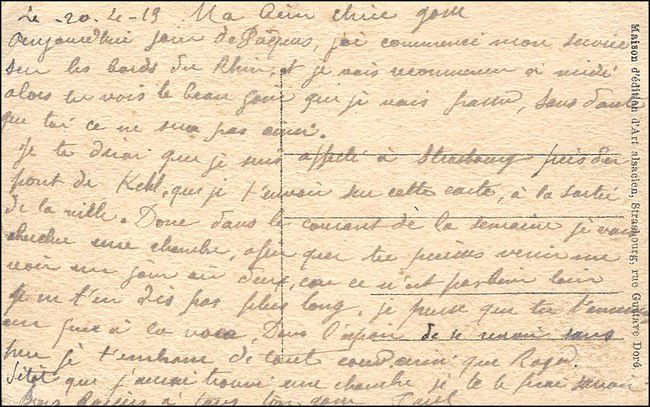 Le 20.4-19 Ma bien chère
Aujourd'hui jour de Pâques, j'ai commencé mon service
sur les bords du Rhin, et je vais recommencer à midi
alors tu vois le beau jour que je vais passer, sans doute
que toi ce ne sera pas ainsi.
Je te dirai que je suis affecté à Strasbourg près du
pont de Kehl, que je t'envoie sur cette carte, à la sortie
de la ville. Donc dans le courant de la semaine je vais
chercher une chambre, afin que tu puisses venir me
voir un jour ou deux, car ce n'est pas bien loin
Je ne t'en dis pas plus long, je pense que tu
Dans l'espoir de se revoir sous
peu je t'embrasse de tout cœur, ainsi que Roger.
Sitôt que j'aurai trouvé une chambre je te le ferai savoir
Bons Baisers à tous
Maison d'édition d'Art alsacien, Strasbourg, rue Gustave Doré.